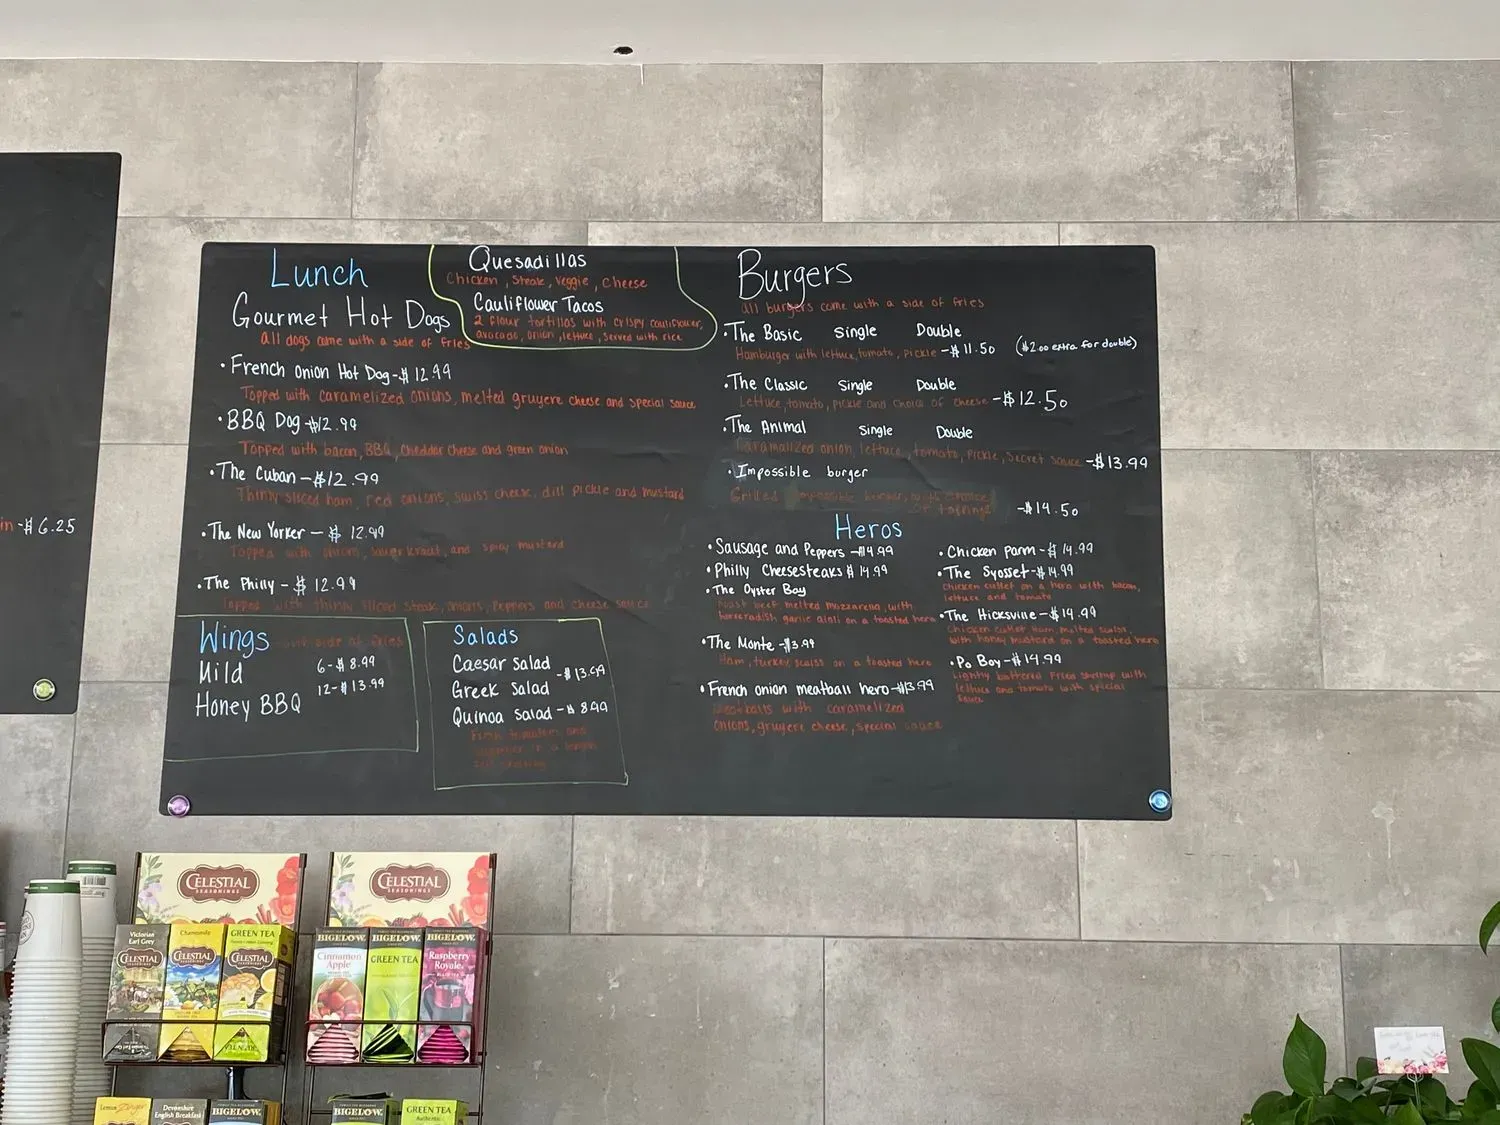 in -$6.25
Lunch
Gourmet Hot Dogs
All dogs come with a side of fries
Quesadillas
Chicken, Steak, Veggie, Cheese
Cauliflower Tacos
2 flour tortillas with crispy cauliflower,
avocado, onion, lettuce, served with rice
• French Onion Hot Dog -$12.99
Topped with caramelized onions, melted gruyere cheese and special sauce
• BBQ Dog -$12.99
Topped with bacon, BBQ, Cheddar Cheese and green onion
• The Cuban -$12.99
Thinly sliced ham, red onions, swiss cheese, dill pickle and mustard
• The New Yorker - $12.99
Topped with onions, and spicy mustard
• The Philly - $12.99
Topped with thinly sliced steak, onions, Peppers and cheese sauce
Wings with side of fries
Mild
Honey BBQ
6 -$8.99
12 -$13.99
Salads
Caesar Salad
Greek Salad
-$13.99
Quinoa Salad -$8.99
Fresh tomatoes and
in a lemon
Burgers
all burgers come with a side of fries
• The Basic Single Double
Hamburger with lettuce, tomato, pickle -$11.50 ($2.00 extra for double)
• The Classic Single Double
Lettuce, tomato, pickle and choice of cheese -$12.50
• The Animal Single Double
Caramalized onion, lettuce, tomato, pickle, secret sauce -$13.99
• Impossible burger
Grilled impossible burger, choice
of toppings -$14.50
Heros
• Sausage and Peppers -$14.99
• Philly Cheesesteaks $14.99
• The Oyster Bay
roast beef, melted mozzarella, with
horseradish garlic aioli on a toasted hero
• The Monte -$13.99
Ham, turkey, swiss on a toasted hero
• French onion meatball hero -$13.99
Meatballs with caramelized
onions, gruyere cheese, special sauce
• Chicken Parm -$14.99
• The Syosset -$14.99
Chicken cutlet on a hero with bacon,
lettuce and tomato
• The Hicksville -$14.99
Chicken cutlet ham melted swiss,
with honey mustard on a toasted hero
• Po Boy -$14.99
Lightly battered fried shrimp with
lettuce and tomato with special
sauce
CELESTIAL
SEASONINGS
CELESTIAL
SEASONINGS
Victorian
Earl Grey
CELESTIAL
Chamomile
CELESTIAL
GREEN TEA
CELESTIAL
BIGELOW
Cinnamon
Apple
BIGELOW
GREEN TEA
BIGELOW
Raspberry
Royale
Lemon Zinger
Devonshire
English Breakfast
BIGELOW
BIGELOW
GREEN TEA